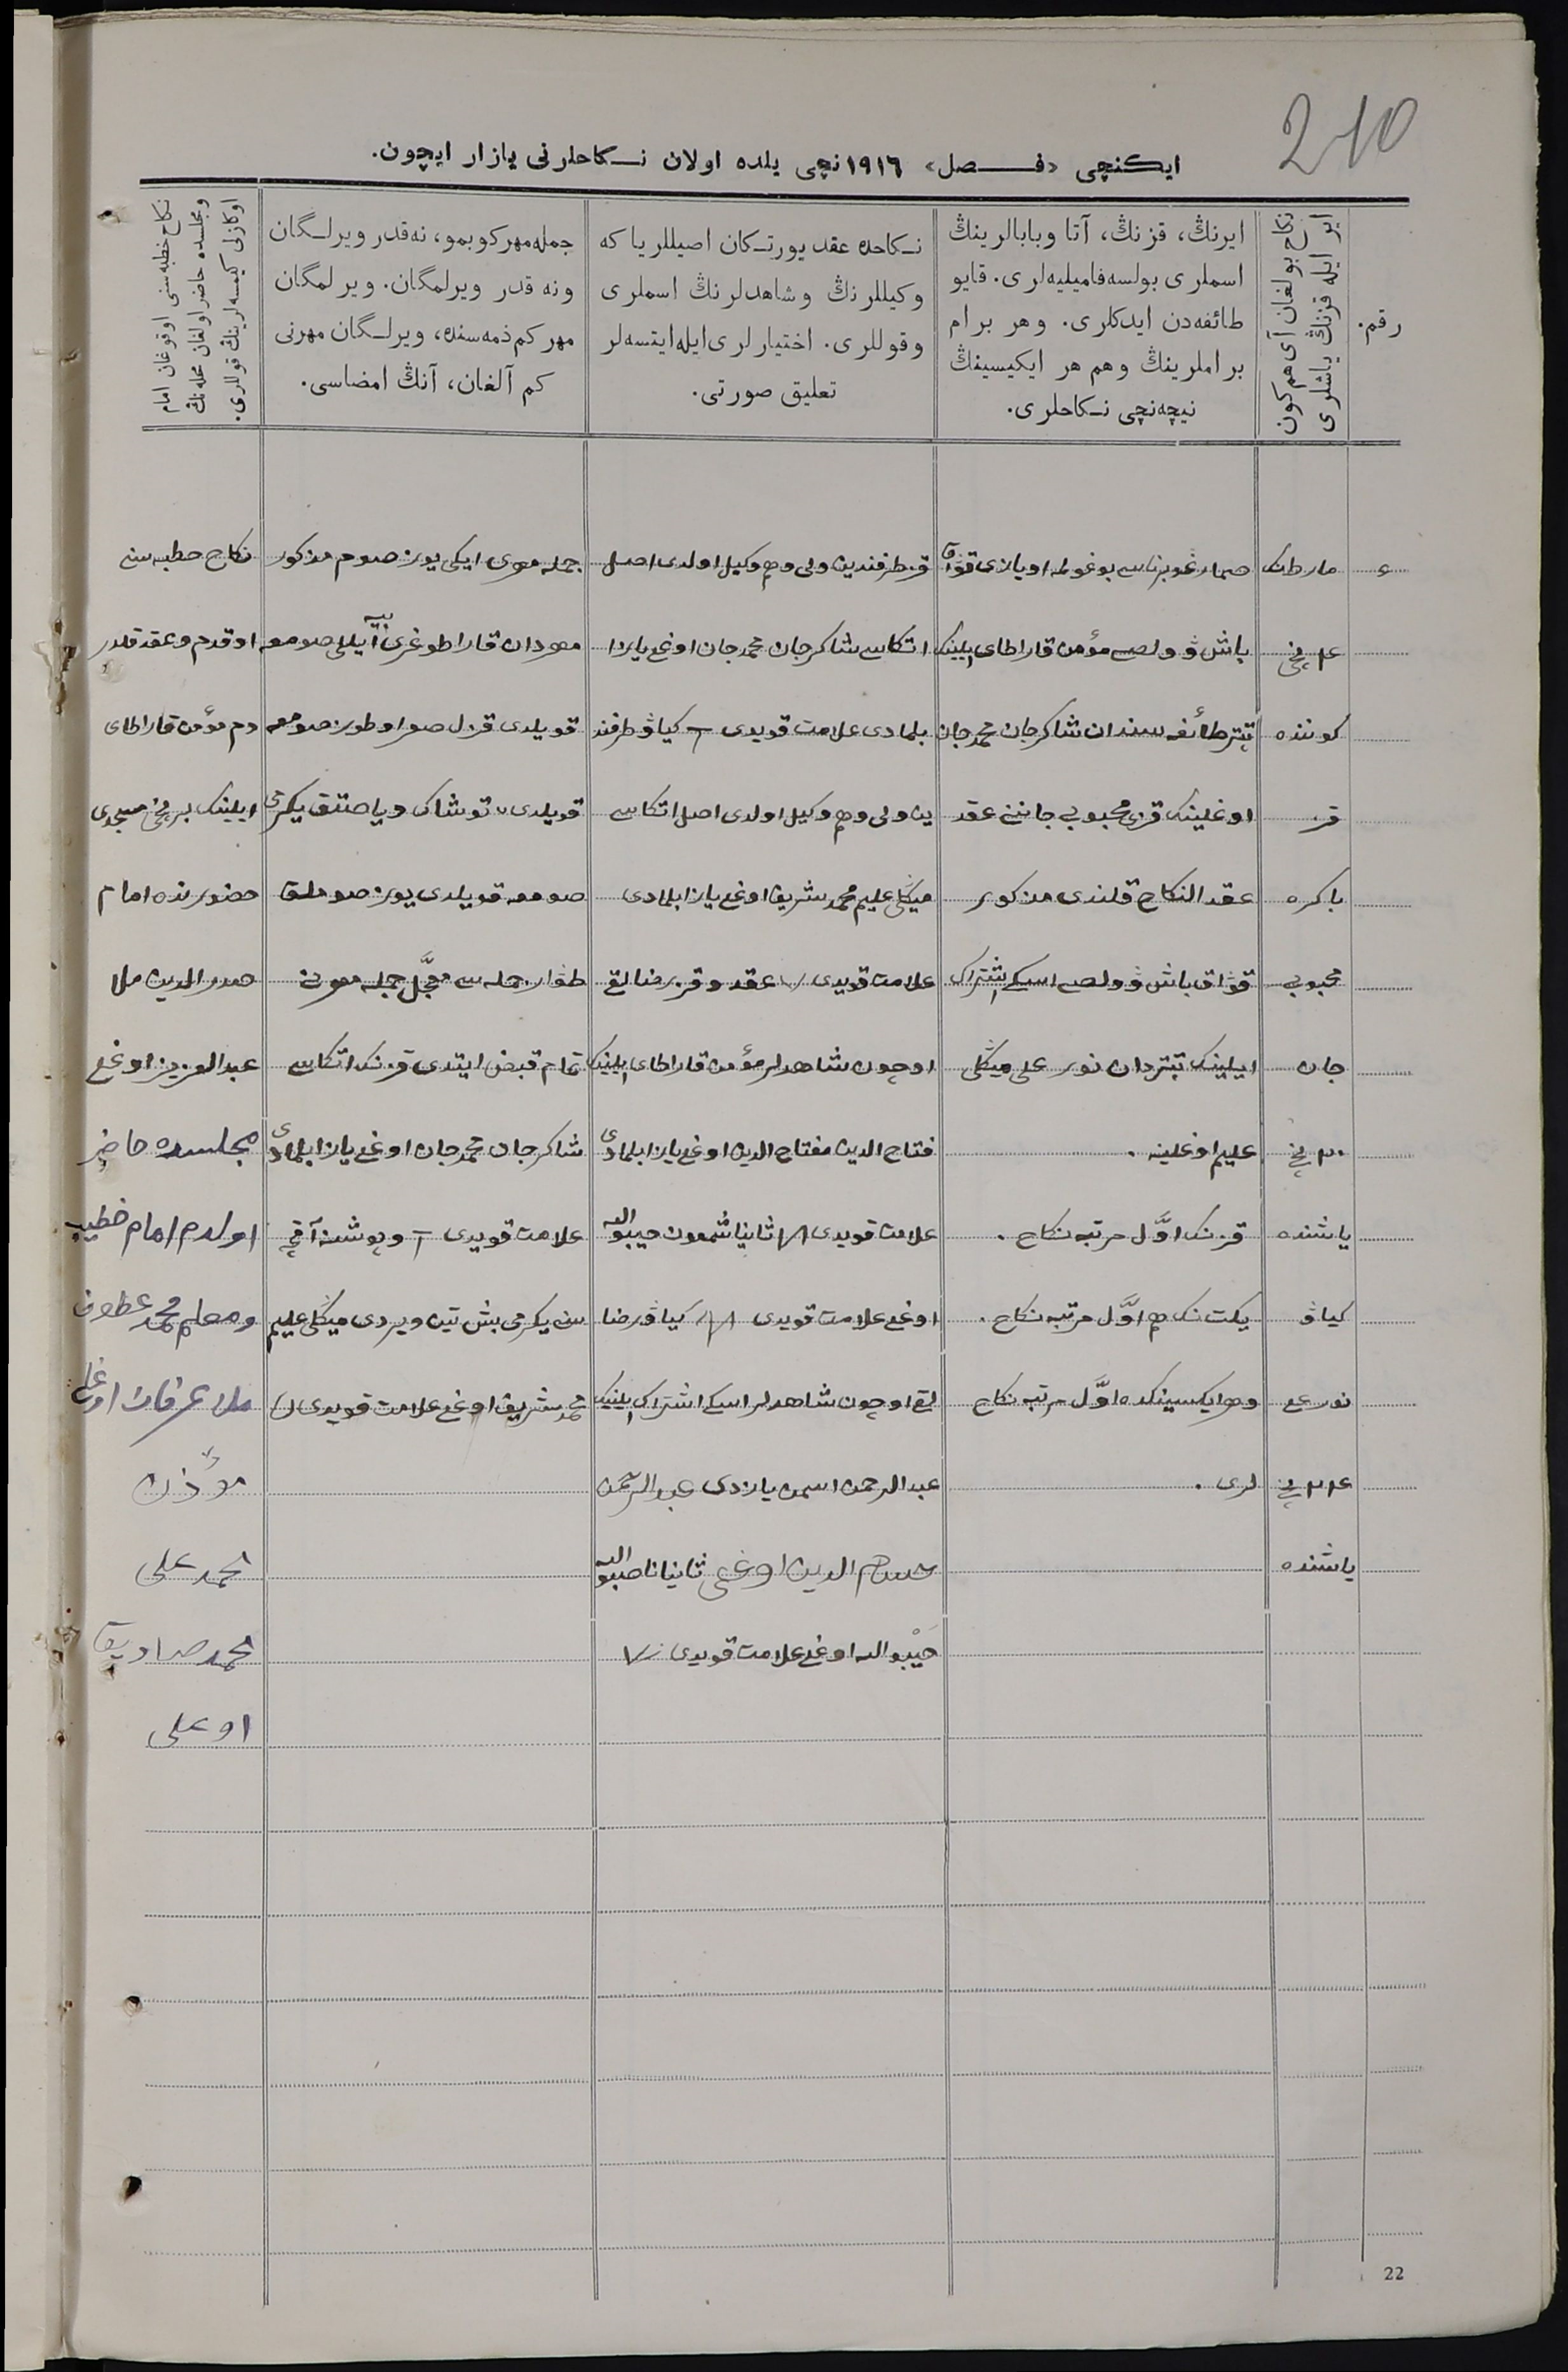 210
ایكنچی «فـــصل» ١٩١٦نچی یلده اولان نـكاحلرنی یازار ایچون.
رقم.
نكاح بولغان آی هم كون
ایر ایله قزنڭ یاشلری
ایرنڭ، قزنڭ، آتا وبابالرینڭ
اسملری بولسه‌فامیلیه‌لری. قایو
طائفه‌دن ایدكلری. وهر برام
براملرینڭ وهم هر ایكیسینڭ
نیچه‌نچی نـكاحلری.
نـكاحده عقد یورتـكان اصیللر یا كه
وكیللرنڭ وشاهدلرنڭ اسملری
وقوللری. اختیارلری‌ایله‌ایتسه‌لر
تعلیق صورتی.
جمله‌مهر كوبمو، نه‌قدر ویرلـگان
ونه قدر ویرلمگان. ویرلمگان
مهر كم ذمه‌سنده، ویرلـگان مهرنی
كم آلغان، آنڭ امضاسی.
نكاح خطبه‌سنی اوقوغان امام
ومجلسده حاضر اولغان محله‌نڭ
اوكازلی كیمسه‌لرینڭ قوللری.
٤
مارطنك
٤ نچی
كوننده
قز
باكره
محبوبی
جان
٢٠ نچی
یاشنده
كیاڤ
نورعلی
٢٤ نچی
یاشنده
صمار غوبرناسی بوغولمه اویازی قوزاق
باش ڤولصی مؤمن قاراطای ایلینك
تپتر طائفه‌سندان شاكرجان محمدجان
اوغلینك قزی محبوبی جاننی عقد
عقد النكاح قلندی مذكور
قوزاق باش ڤولصی اسكی اشتراك
ایلینك تپتردان نورعلی میڭلی
علیم اوغلینه.
قزنك اوّل مرتبه نكاح.
یكت نك هم اوّل مرتبه نكاح.
وهر ایكسینكده اوّل مرتبه نكاح
لری.
قز طرفندین ولی وهم وكیل اولدی اصل
اتكاسی شاكرجان محمدجان اوغلی یازا
بلمادی علامت قویدی كیاڤ طرفند
ین ولی وهم وكیل اولدی اصل اتكاسی
میڭلی علیم محمدشریف اوغلی یازا بلمادی
علامت قویدی عقد وقز رضالق
اوچون شاهدلر مؤمن قاراطای ایلینك
فتاح الدین مفتاح الدین اوغلی یازا بلمادی
علامت قویدی ثانیا شمعون حیبوالله
اوغلی علامت قویدی كیاڤ رضا
لق اوچون شاهدلر اسكی اشتراك ایلینك
عبدالرحمن اسمن یازدی عبدالرحمن
حسام الدین اوغلی ثانیا ناصبوالله
حیبوالله اوغلی علامت قویدی
جمله مهری ایكی یوز صوم مذكور
مهردان قارا طوغری نیه آیللی صومعه
قویلدی قزل صر اوطوز صومعه
قویلدی توشاك ویاصتق یكرمی
صومعه قویلدی یوز صوملق
طوار جمله‌سی معجّل جمله مهرنی
تمام قبض ایتدی قزنك اتكاسی
شاكرجان محمدجان اوغلی یازا بلمادی
علامت قویدی وپوشنه آقچه
سن یكرمی بش تین ویردی میڭلی علیم
محمدشریف اوغلی علامت قویدی
نكاح خطبه‌سنی
اوقدم وعقد قلدر
دم مؤمن قاراطای
ایلینك برنچی مسجدی
حضورنده امام
صدرالدین ملا
عبدالعزیز اوغلی
مجلسده حاضر
اولدم امام خطیب
ومعلم محمد عطوف
ملا عرفان اوغلی
مؤذن
محمدعلی
محمدصادیق
اوغلی
22